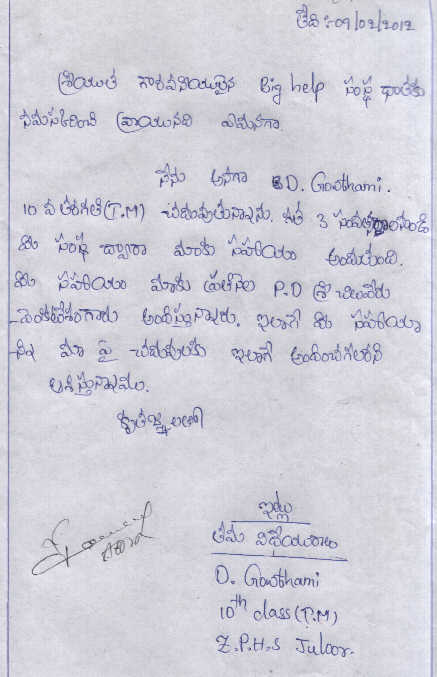 తేది :- 09/02/2012
శ్రీయుత గౌరవనీయులైన Big help సంస్థ దాతకు
నమస్కరించి వ్రాయునది ఏమనగా.
నేను అనగా D. Gowthami.
10 వ తరగతి (T.M) చదువుతున్నాను. గత 3 సంవత్సరాలనుండి
ఈ సంస్థ ద్వారా మాకు సహాయం అందుతుంది.
ఈ సహాయం మాకు ప్రతినెల P.D శ్రీ చిలువేరు
వెంకటేశంగారు అందిస్తున్నారు. ఇలాగే ఈ సహాయా
న్ని మా పై చదువులకు ఇలాగే అందించగలరని
ఆశిస్తున్నాము.
కృతజ్ఞతలతో
ఇట్లు
తమ విధేయురాలు
D. Gowthami
10th class (T.M)
Z.P.H.S Juloor.